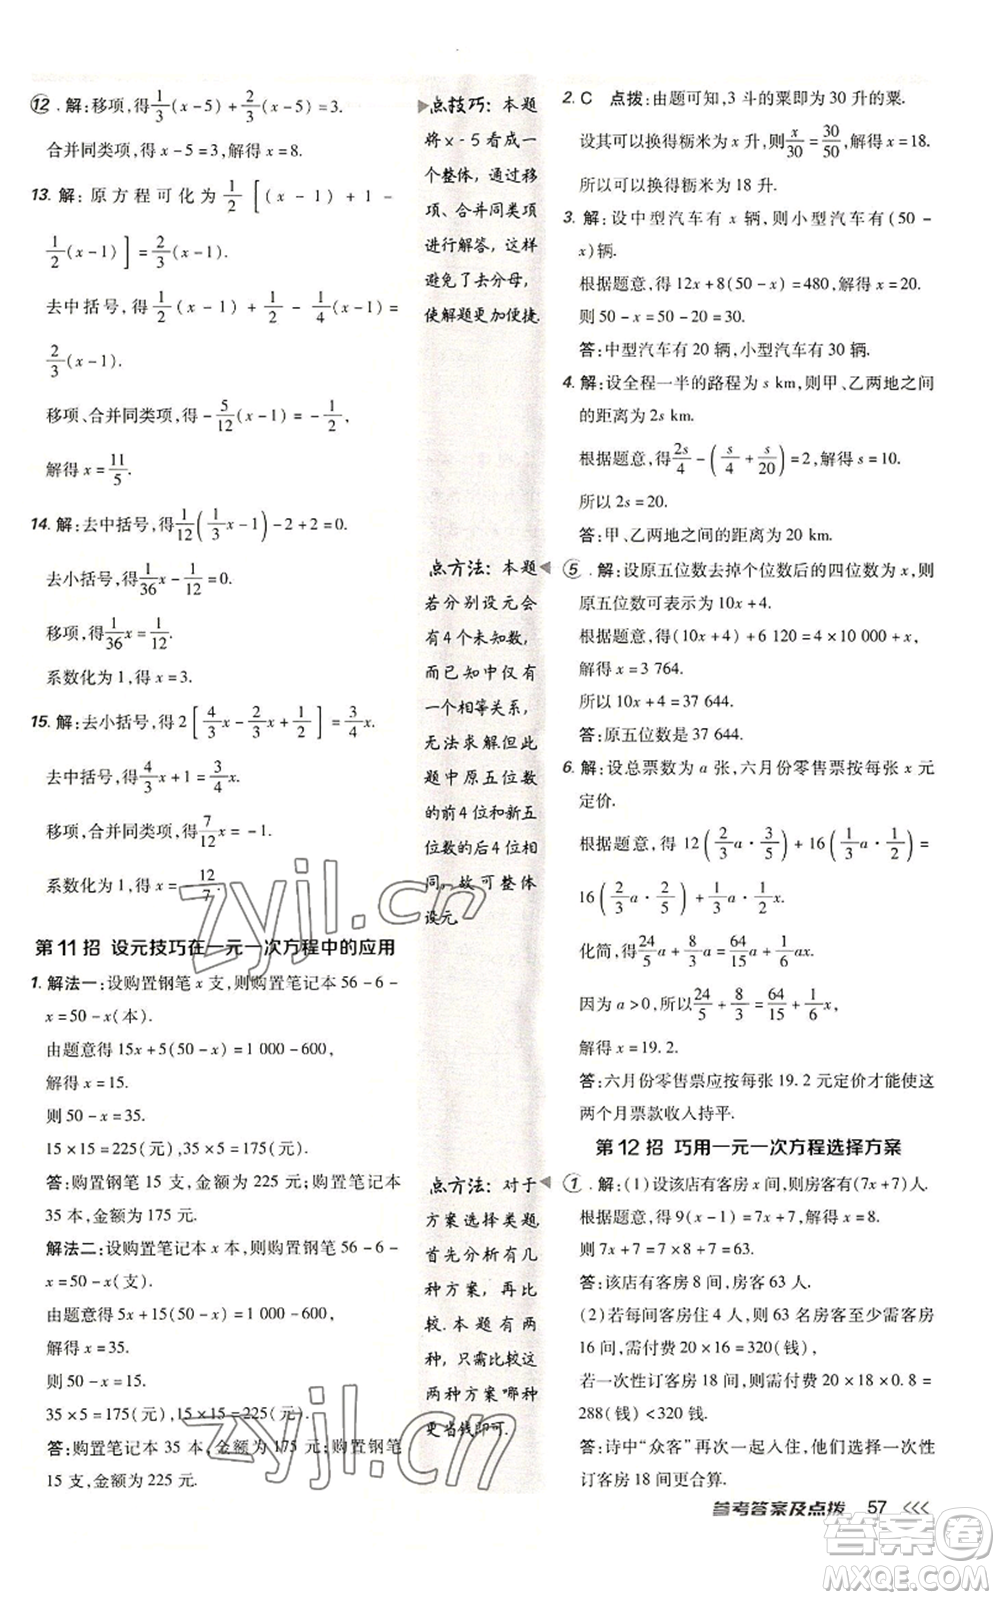 12. 解:移项,得1/3(x-5)+2/3(x-5)=3.
合并同类项,得x-5=3,解得x=8.
13. 解:原方程可化为1/2[(x-1)+1-
1/2(x-1)]=2/3(x-1).
去中括号,得1/2(x-1)+1/2-1/4(x-1)=
2/3(x-1).
移项、合并同类项,得-5/12(x-1)=-1/2,
解得x=11/5.
14. 解:去中括号,得1/12(1/3x-1)-2+2=0.
去小括号,得1/36x-1/12=0.
移项,得1/36x=1/12.
系数化为1,得x=3.
15. 解:去小括号,得2[4/3x-2/3x+1/2]=3/4x.
去中括号,得4/3x+1=3/4x.
移项,合并同类项,得7/12x=-1.
系数化为1,得x=-12/7.
第11招 设元技巧在一元一次方程中的应用
1. 解法一:设购置钢笔x支,则购置笔记本56-6-
x=50-x(本).
由题意得15x+5(50-x)=1 000-600,
解得x=15.
则50-x=35.
15×15=225(元),35×5=175(元).
答:购置钢笔15支,金额为225元;购置笔记本
35本,金额为175元.
解法二:设购置笔记本x本,则购置钢笔56-6-
x=50-x(支).
由题意得5x+15(50-x)=1 000-600,
解得x=35.
则50-x=15.
35×5=175(元),15×15=225(元).
答:购置笔记本35本,金额为175元;购置钢笔
15支,金额为225元.
点技巧:本题
将x-5看成一
个整体,通过移
项、合并同类项
进行解答,这样
避免了去分母,
使解题更加便捷.
点方法:本题
若分别设元会
有4个未知数,
而已知中仅有
一个相等关系,
无法求解.但此
题中原五位数
的前4位和新五
位数的后4位相
同,故可整体
设元.
点方法:对于
方案选择类题,
首先分析有几
种方案,再比
较.本题有两
种,只需比较这
两种方案哪种
更省钱即可.
2. C 点拨:由题可知,3斗的粟即为30升的粟.
设其可以换得粝米为x升,则x/30=30/50,解得x=18.
所以可以换得粝米为18升.
3. 解:设中型汽车有x辆,则小型汽车有(50-
x)辆.
根据题意,得12x+8(50-x)=480,解得x=20.
则50-x=50-20=30.
答:中型汽车有20辆,小型汽车有30辆.
4. 解:设全程一半的路程为s km,则甲、乙两地之间
的距离为2s km.
根据题意,得2s/4-(s/4+s/20)=2,解得s=10.
所以2s=20.
答:甲、乙两地之间的距离为20 km.
5. 解:设原五位数去掉个位数后的四位数为x,则
原五位数可表示为10x+4.
根据题意,得(10x+4)+6 120=4×10 000+x,
解得x=3 764.
所以10x+4=37 644.
答:原五位数是37 644.
6. 解:设总票数为a张,六月份零售票按每张x元
定价.
根据题意,得12(2/3a·3/5)+16(1/3a·1/2)=
16(2/3a·2/5)+(1/3a·1/2)x,
化简,得24/5a+8/3a=64/15a+1/6ax.
因为a>0,所以24/5+8/3=64/15+1/6x,
解得x=19.2.
答:六月份零售票应按每张19.2元定价才能使这
两个月票款收入持平.
第12招 巧用一元一次方程选择方案
1. 解:(1)设该店有客房x间,则房客有(7x+7)人.
根据题意,得9(x-1)=7x+7,解得x=8.
则7x+7=7×8+7=63.
答:该店有客房8间,房客63人.
(2)若每间客房住4人,则63名房客至少需客房
16间,需付费20×16=320(钱),
若一次性订客房18间,则需付费20×18×0.8=
288(钱)<320钱.
答:诗中“众客”再次一起入住,他们选择一次性
订客房18间更合算.
参考答案及点拨 57
zyjl.cn
zyjl.cn
答案圈
MXQE.COM